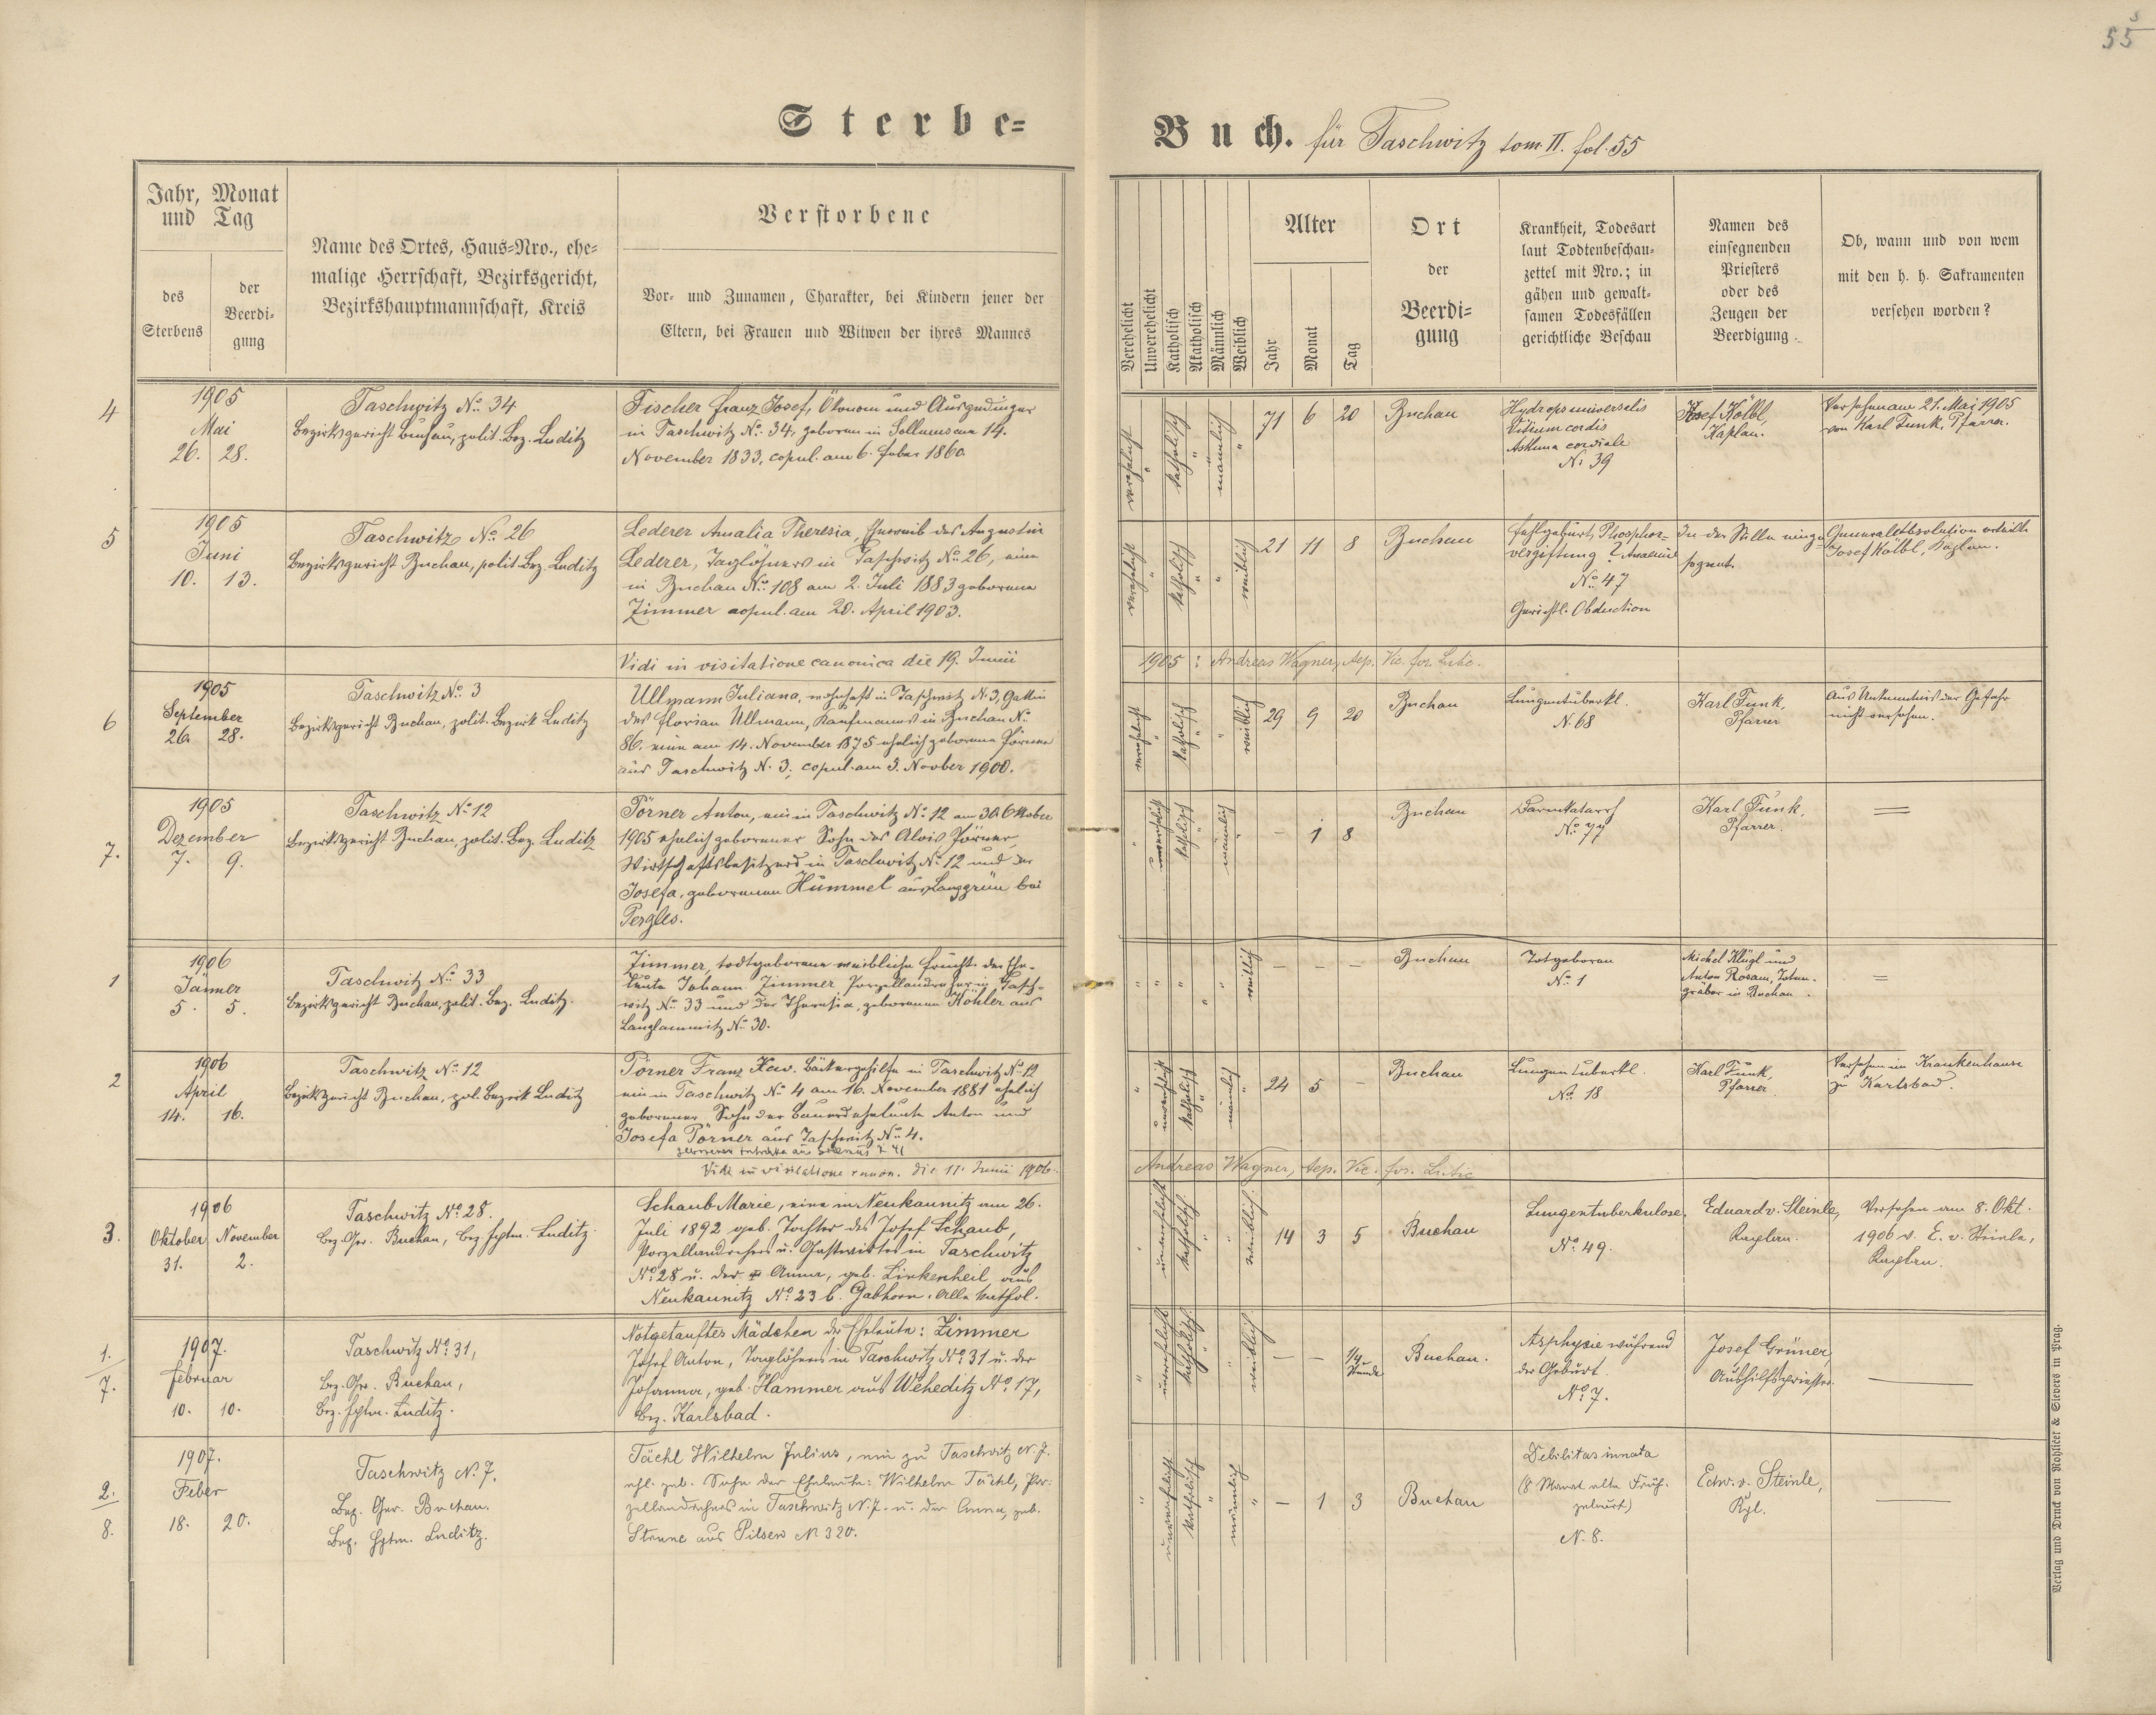 55
Sterbe-
Buch. für Taschwitz tom. II. fol. 55
Jahr, Monat und Tag
des Sterbens
der Beerdi-
gung
Name des Ortes, Haus-Nro., ehe-
malige Herrschaft, Bezirksgericht,
Bezirkshauptmannschaft, Kreis
Verstorbene
Vor- und Zunamen, Charakter, bei Kindern jener der
Eltern, bei Frauen und Witwen der ihres Mannes
Verehelicht
Unverehelicht
Katholisch
Akatholisch
Männlich
Weiblich
Alter
Jahr
Monat
Tag
Ort
der
Beerdi-
gung
Krankheit, Todesart
laut Todtenbeschau-
zettel mit Nro.; in
gähen und gewalt-
samen Todesfällen
gerichtliche Beschau
Namen des
einsegnenden
Priesters
oder des
Zeugen der
Beerdigung
Ob, wann und von wem
mit den h. h. Sakramenten
versehen worden?
4
1905
Mai
26. 28.
Taschwitz No. 34
Bezirksgericht Buchau, polit. Bez. Luditz
Fischer Franz Josef, Ökonom und Ausgedinger
in Taschwitz No. 34, geboren in am 14.
November 1833, copul. am 6. Feber 1860.
verehelicht
katholisch
männlich
71 6 20
Buchau
Hydrops universalis
Vitium cordis
Asthma cordiale
N. 39
Josef Kölbl,
Kaplan.
Versehen am 21. Mai 1905
von Karl Funk, Pfarrer.
5
1905
Juni
10. 13.
Taschwitz No. 26
Bezirksgericht Buchau, polit. Bez. Luditz
Lederer Amalia Theresia, Eheweib des Augustin
Lederer, Taglöhners in Taschwitz No. 26, eine
in Buchau No. 108 am 2. Juli 1883 geborene
Zimmer copul. am 20. April 1903.
verehelicht
katholisch
weiblich
21 11 8
Buchau
Fehlgeburt, Phosphor-
vergiftung? Anaemie
No. 47
Gerichtl. Obduction
In der Stille einge-
segnet.
Generalabsolution erteilte
Josef Kölbl, Kaplan.
Vidi in visitatione canonica die 19. Junii
1905: Andreas Wagner, Aep. Vic. for. Lutic.
6
1905
September
26. 28.
Taschwitz No. 3
Bezirksgericht Buchau, polit. Bezirk Luditz
Ullmann Juliana, wohnhaft in Taschwitz N. 3, Gattin
des Florian Ullmann, Kaufmannes in Buchau N.
86. eine am 14. November 1875 ehelich geborene Pörner
aus Taschwitz N. 3; copul. am 3. Novber 1900.
verehelicht
katholisch
weiblich
29 9 20
Buchau
Lungentuberkl.
N. 68
Karl Funk,
Pfarrer
Aus Unkenntnis der Gefahr
nicht versehen.
7.
1905
Dezember
7. 9.
Taschwitz No. 12
Bezirksgericht Buchau, polit. Bez. Luditz
Pörner Anton, ein in Taschwitz No. 12 am 30. Oktober
1905 ehelich geborener Sohn des Alois Pörner,
Wirtschaftsbesitzers in Taschwitz No. 12 und der
Josefa, geborenen Hummel aus Langgrün bei
Pergles.
unverehelicht
katholisch
männlich
— 1 8
Buchau
Darmkatarrh
No. 77
Karl Funk,
Pfarrer.
1
1906
Jänner
5. 5.
Taschwitz No. 33
Bezirksgericht Buchau, polit. Bez. Luditz.
Zimmer, todtgeborene weibliche Frucht der Ehe-
leute Johann Zimmer, Porzellandreher in Tasch-
witz No. 33 und der Theresia, geborenen Köhler aus
Langlammitz No. 30.
weiblich
— — —
Buchau
Totgeboren
No. 1
Michel Klügl und
Anton Rosam, Toten-
gräber in Buchau.
2
1906
April
14. 16.
Taschwitz No. 12
Bezirksgericht Buchau, pol. Bezirk Luditz
Pörner Franz Xav. Bäckergehilfe in Taschwitz No. 12
ein in Taschwitz No. 4 am 16. November 1881 ehelich
geborener Sohn der Bauerseheleute Anton und
Josefa Pörner aus Taschwitz No. 4.
Vidi in visitatione canon. die 11. Junii 1906.
Andreas Wagner, Aep. Vic. for. Lutic
unverehelicht
katholisch
männlich
24 5 —
Buchau
Lungentuberkl.
No. 18
Karl Funk,
Pfarrer.
Versehen im Krankenhause
zu Karlsbad.
3.
1906
Oktober November
31. 2.
Taschwitz No. 28.
Bez. Ger. Buchau, Bez. Hptm. Luditz.
Schaub Marie, eine in Neukaunitz am 26.
Juli 1892 geb. Tochter des Josef Schaub,
Porzellandrehers u. Gastwirtes in Taschwitz
No. 28 u. der Anna, geb. Linkenheil aus
Neukaunitz No. 23 b. Gabhorn. Alle kathol.
unverehelicht
katholisch
weiblich.
14 3 5
Buchau
Lungentuberkulose.
No. 49.
Eduard v. Steinle,
Kaplan.
Versehen am 8. Okt.
1906 v. E. v. Steinle,
Kaplan.
1./7.
1907.
Februar
10. 10.
Taschwitz No. 31,
Bez. Ger. Buchau,
Bez. Hptm. Luditz.
Notgetauftes Mädchen der Eheleute: Zimmer
Josef Anton, Taglöhners in Taschwitz No. 31 u. der
Johanna, geb. Hammer aus Weheditz No. 17,
Bez. Karlsbad.
unverehelicht
katholisch.
weiblich.
— — 1/4 Stunde
Buchau.
Asphyxie während
der Geburt.
No. 7.
Josef Grüner,
Aushilfspriester.
2./8.
1907.
Feber
18. 20.
Taschwitz N. 7.
Bez. Ger. Buchau.
Bez. Hptm. Luditz.
Tächl Wilhelm Julius, ein zu Taschwitz N. 7.
ehl. geb. Sohn der Eheleute: Wilhelm Tächl, Por-
zellandrehers in Taschwitz N. 7. u. der Anna, geb.
aus Pilsen N. 320.
unverehelicht
katholisch
männlich
— 1 3
Buchau
Debilitas innata
(8 Monat alte Früh-
geburt)
N. 8.
Edw. v. Steinle,
Kpl.
Verlag und Druck von Rohliček & Sievers in Prag.